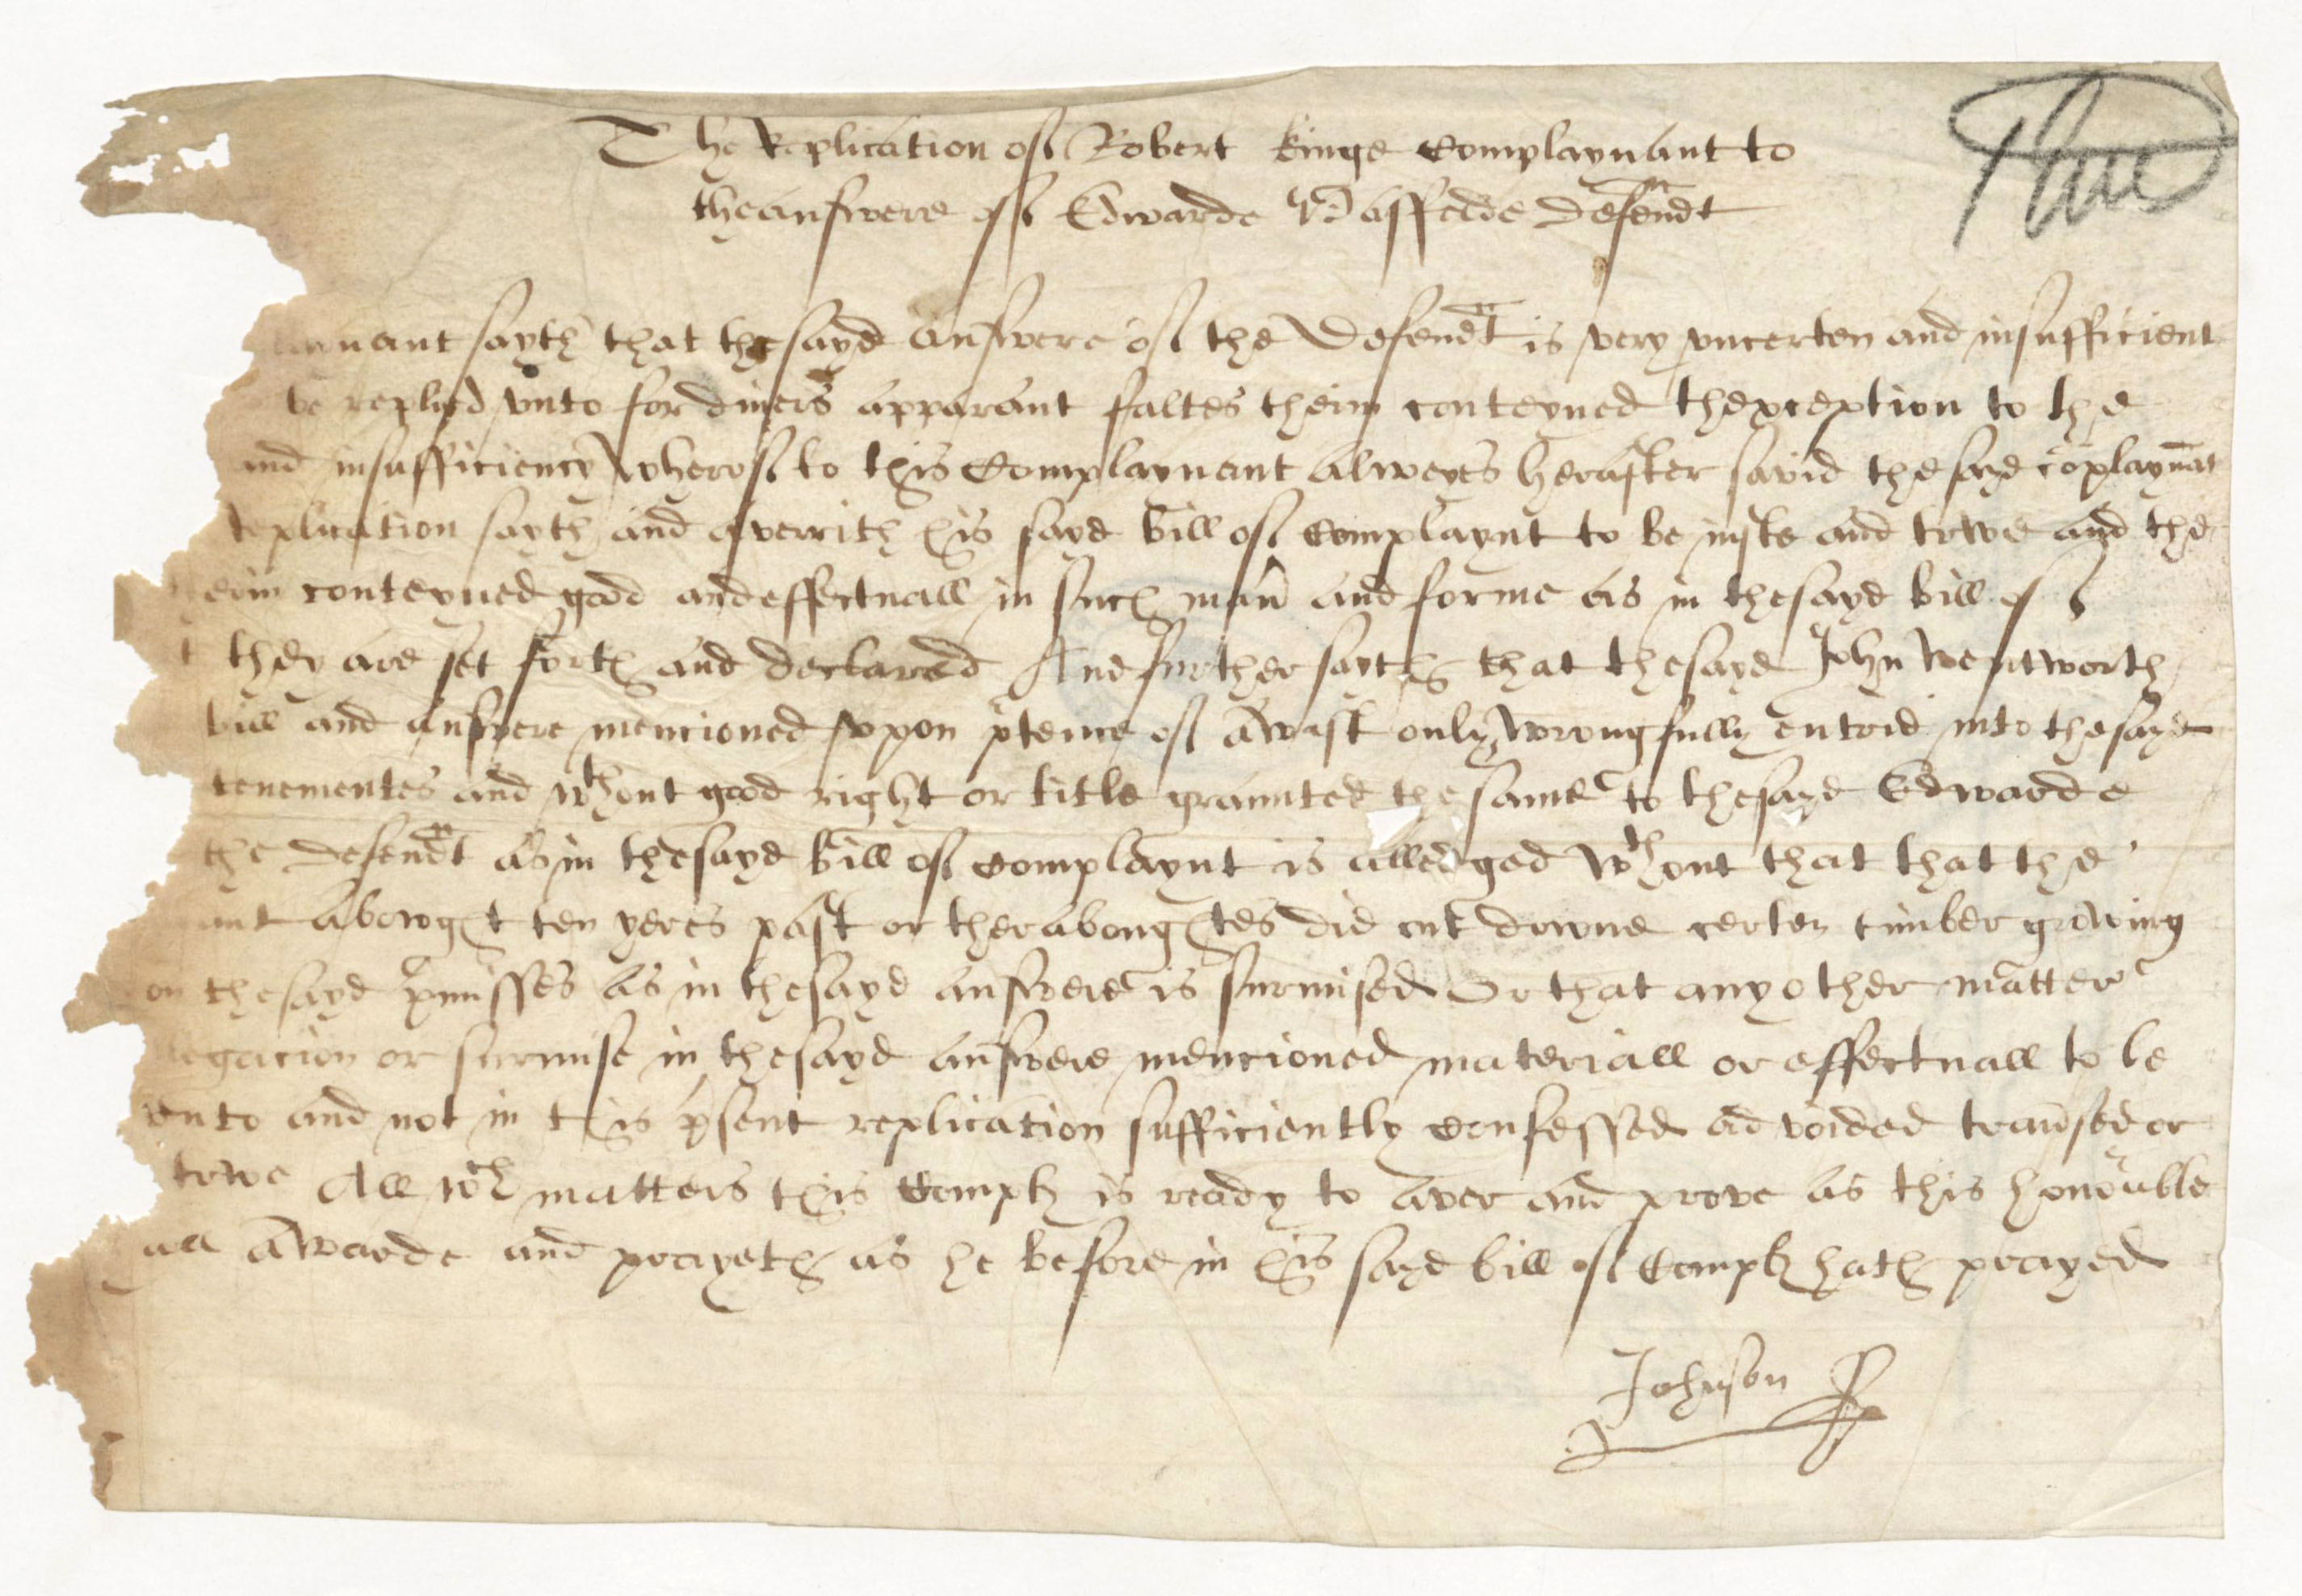 The Replication of Robert Kinge Complaynant to
theanswere of Edwarde Wasffelde Defendt
nant sayth that the sayd answere of the Defendt is very vncerten and insufficient
be replyed vnto for diuers apparant faltes therin conteyned thexception to the
and insufficiency wherof to this Complaynant alweyes herafter savid the sayd coplaynat
replication sayth and averrith his sayd bill of Complaynt to be iuste and trwe and the
erin conteyned good and effectuall in such man and forme as in thesayd bill of
they are set forth and declared And further sayth that thesayd John wentworth
bill and answere mencioned vppon ptence of a wast only wrongfully entrid into thesayd
tenementes and wthout good right or title graunted the same to thesayd Edwarde
the defendt as in thesayd bill of Complaynt is alledged wthout that that the
ant abowght ten yeres past or theraboughtes did cut downe certen timber growing
on thesayd pmisses as in thesayd answere is surmised Or that any other matter
egacion or surmise in thesayd answere mencioned materiall or effectuall to be
vnto and not in this psent replication sufficiently confessed advoided travsed or
trwe All wch matters this Compl is ready to aver and prove as this honoable
all awarde and prayeth as he before in his sayd bill of Compl hath prayed
Johnson